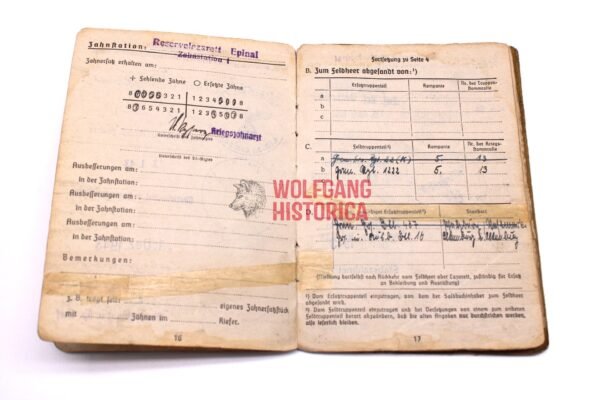 Zahnstation: Reservelazarett Epinal
Zahnstation 1
Zahnersatz erhalten am:
+ Fehlende Zähne ○ Ersetzte Zähne
8 7 6 5 4 3 2 1 | 1 2 3 4 5 6 7 8
8 7 6 5 4 3 2 1 | 1 2 3 4 5 6 7 8
Kriegszahnarzt
Ausbesserungen am:
in der Zahnstation:
Ausbesserungen am:
in der Zahnstation:
Ausbesserungen am:
in der Zahnstation:
Bemerkungen:
z. B. trägt seit: eigenes Zahnersatzstück
mit Zähnen im Kiefer.
16
Fortsetzung zu Seite 4
B. Zum Feldheer abgesandt von:¹)
Ersatztruppenteil Kompanie Nr. der Truppen-
stammrolle
a
b
c
C. Feldtruppenteil²) Kompanie Nr. der Kriegs-
stammrolle
a 5. 13
b Gren. Rgt. 1222 5. 13
c
WOLFGANG
HISTORICA
Ersatztruppenteil Standort
(Meldung dortselbst nach Rückkehr vom Feldheer oder Lazarett, zuständig für Ersatz
an Bekleidung und Ausrüstung)
¹) Vom Ersatztruppenteil einzutragen, von dem der Soldbuchinhaber zum Feldheer
abgesandt wird.
²) Vom Feldtruppenteil einzutragen und bei Versetzungen von einem zum anderen
Feldtruppenteil derart abzuändern, daß die alten Angaben nur durchstrichen werden,
also leserlich bleiben.
17